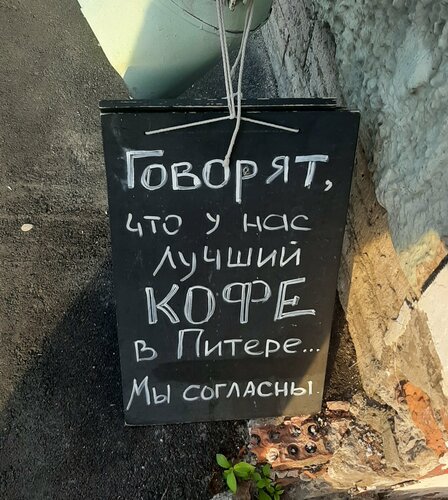 Говорят,
что у нас
лучший
КОФЕ
в Питере...
Мы согласны.